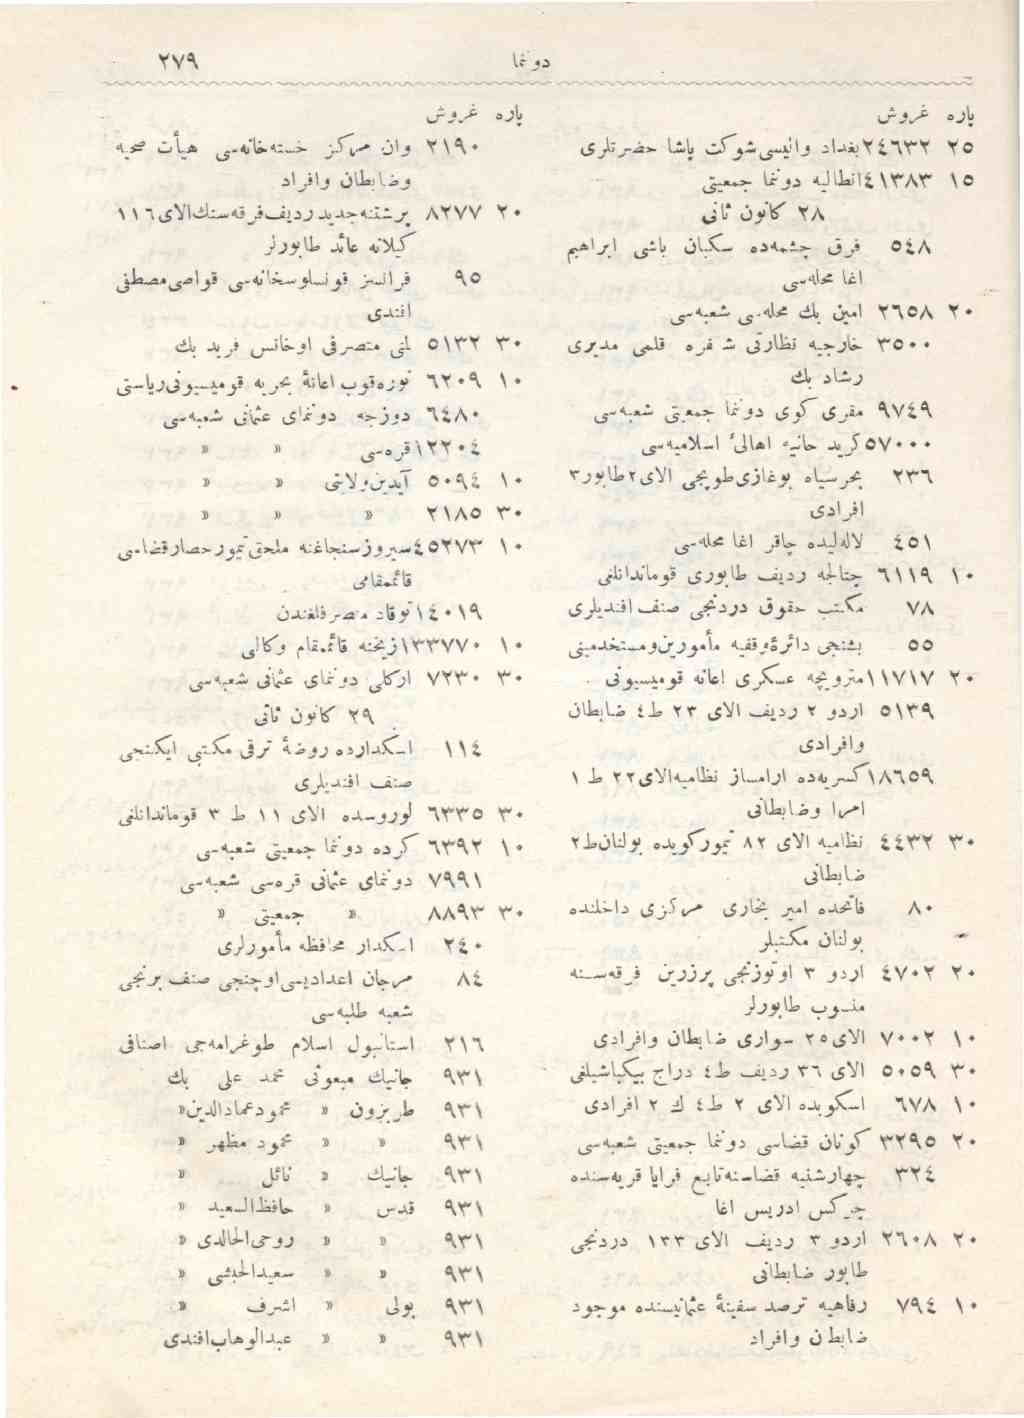 دوننما ٢٧٩
پاره غروش
٢٥ ٢٤٦٣٢ بغداد والیسی شوكت پاشا حضرتلری
١٥ ٤١٣٨٣ انطالیه دوننما جمعیتی
٢٨ كانون ثانی
٥٤٨ فرق چشمه‌ده سكبان باشی ابراهیم
اغا محله‌سی
٢٠ ٢٦٥٨ امین بك محله‌سی شعبه‌سی
٣٥٠٠ خارجیه نظارتی شفره قلمی مدیری
رشاد بك
٩٧٤٩ مقری كوی دوننما جمعیتی شعبه‌سی
٥٧٠٠٠ كرید حانیه اهالیٔ اسلامیه‌سی
٢٣٦ بحرسیاه بوغازی طوپجی الای ٢ طابور ٣
افرادی
٤٥١ لاله‌لیده چاقر اغا محله‌سی
١٠ ٦١١٩ چتالجه ردیف طابوری قوماندانلغی
٧٨ مكتب حقوق دردنجی صنف افندیلری
٥٥ بشنجی دائرهٔ وقفیه مأمورین ومستخدمینی
٢٠ ١١٧١٧ متروپچه عسكری اعانه قومیسیونی
٥١٣٩ اردو ٢ ردیف الای ٢٣ ط ٤ ضابطان
وافرادی
١٨٦٥٩ كسریه‌ده ارامساز نظامیه الای ٢٢ ط ١
امرا وضابطانی
٣٠ ٤٤٣٢ نظامیه الای ٨٢ تیموركویده بولنان ط ٢
ضابطانی
٨٠ فاتحده امیر بخاری مركزی داخلنده
بولنان مكتبلر
٢٠ ٤٧٠٢ اردو ٣ اوتوزنجی پرزرین فرقه‌سنه
منسوب طابورلر
١٠ ٧٠٠٢ الای ٢٥ سواری ضابطان وافرادی
٣٠ ٥٠٥٩ الای ٣٦ ردیف ط ٤ دراج بیكباشیلغی
١٠ ٦٧٨ اسكوبده الای ٢ ط ٤ ك ٢ افرادی
٢٠ ٣٢٩٥ كونان قضاسی دوننما جمعیتی شعبه‌سی
٣٢٤ چهارشنبه قضاسنه تابع قرایا قریه‌سنده
چركس ادریس اغا
٢٠ ٢٦٠٨ اردو ٣ ردیف الای ١٣٣ دردنجی
طابور ضابطانی
١٠ ٧٩٤ رفاهیه ترصد سفینهٔ عثمانیسنده موجود
ضابطان وافراد
پاره غروش
٢١٩٠ وان مركز خسته‌خانه‌سی هیأت صحیه
وضابطان وافراد
٢٠ ٨٢٧٧ پرشتنه جدید ردیف فرقه‌سنك الای ١١٦
كیلانه عائد طابورلر
٩٥ فرانسز قونسلوسخانه‌سی قواصی مصطفی
افندی
٣٠ ٥١٣٢ لمنی متصرفی اوخانس فرید بك
١٠ ٦٢٠٩ نوره‌قوب اعانهٔ بحریه قومیسیونی ریاستی
٦٤٨٠ دوزجه دوننمای عثمانی شعبه‌سی
١٢٢٠٤ قره‌سی » »
١٠ ٥٠٩٤ آیدین ولایتی » »
٣٠ ٢١٨٥ » » »
١٠ ٤٥٢٧٣ سیروز سنجاغنه ملحق تیمورحصار قضاسی
قائممقامی
١٤٠١٩ توقاد متصرفلغندن
١٠ ١٣٣٧٧٠ زیخنه قائممقام وكالی
٣٠ ٧٢٣٠ اركلی دوننمای عثمانی شعبه‌سی
٢٩ كانون ثانی
١١٤ اسكدارده روضهٔ ترقی مكتبی ایكنجی
صنف افندیلری
٣٠ ٦٣٣٥ لوروسده الای ١١ ط ٣ قوماندانلغی
١٠ ٦٣٩٢ كرده دوننما جمعیتی شعبه‌سی
٧٩٩١ دوننمای عثمانی قره‌سی شعبه‌سی
٣٠ ٨٨٩٣ » جمعیتی »
٢٤٠ اسكدار محافظه مأمورلری
٨٤ مرجان اعدادیسی اوچنجی صنف برنجی
شعبه طلبه‌سی
٢١٦ استانبول اسلام طوغرامه‌جی اصنافی
٩٣١ جانیك مبعوثی محمد علی بك
٩٣١ طربزون » محمود عمادالدین »
٩٣١ » » محمود مظهر »
٩٣١ جانیك » نائل »
٩٣١ قدس » حافظ السعید »
٩٣١ » » روحی الخالدی »
٩٣١ » » سعید الحبشی »
٩٣١ بولی » اشرف »
٩٣١ » » عبدالوهاب افندی